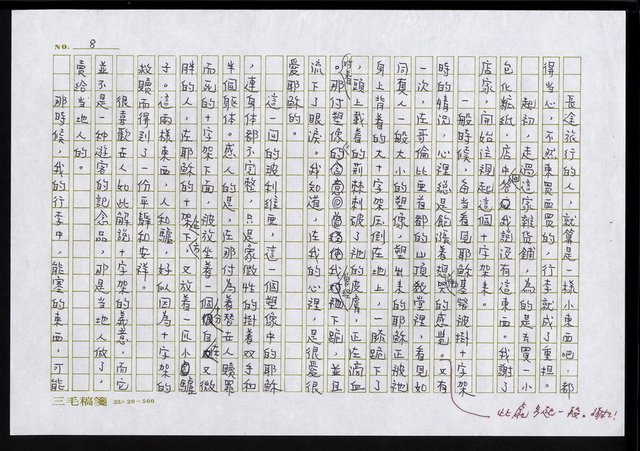 NO. 8
長途旅行的人，就算是一樣小東西吧，都
得當心，不然東買西買的，行李就成了重担。
起初，走過這家雜貨鋪，為的是去買一小
包化粧紙，店中答我說沒有這東西。我謝了
店家，開始注視起這個十字架來。
一般時候，每當看見耶穌基督被掛十字架
時的情況，心裡總是飽漲著想哭的感覺。又有
一次，在哥倫比亞首都的山頂教堂裡，看見如
同真人一般大小的塑像，塑出來的耶穌正被祂
身上背着的大十字架压倒在地上，一膝跪下了
，頭上戴着的荊棘刺破了祂的皮膚，正在滴血
。那付塑像的 跪下，並且
流下了眼淚。我知道，在我的心裡，是很愛很
愛耶穌的。
這一回的玻利維亞，這一個塑像中的耶穌
，連身体都不完整，只是象徵性的掛着双手和
半個軀体。感人的是，在那付為着替世人贖罪
而死的十字架下面，被放坐着一個 又微
胖的人，在耶穌的十字架下， 又放着一匹小驢
子。這兩樣東西，人和驢，好似因為十字架的
救贖而得到了一份平靜和安祥。
很喜歡世人如此解說十字架的義意，而它
並不是一种遊客的記念品，那是當地人做了，
賣給當地人的。
那時候，我的行李中，能塞的東西，可能
三毛稿箋 25×20=500
此處多起一段。謝謝！